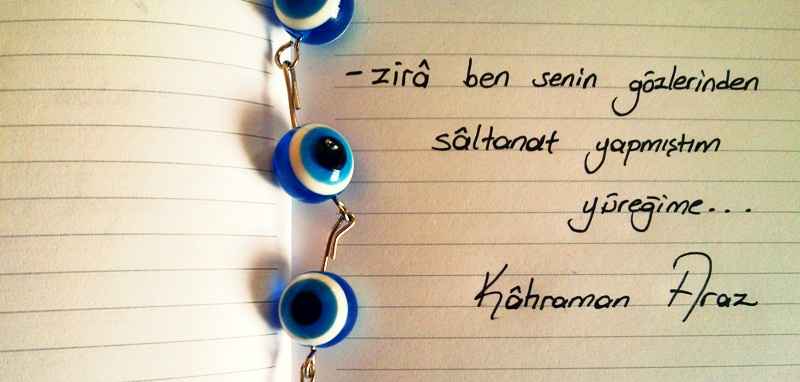 - zirâ ben senin gözlerinden
sâltanat yapmıştım
yüreğime...
Kâhraman Araz